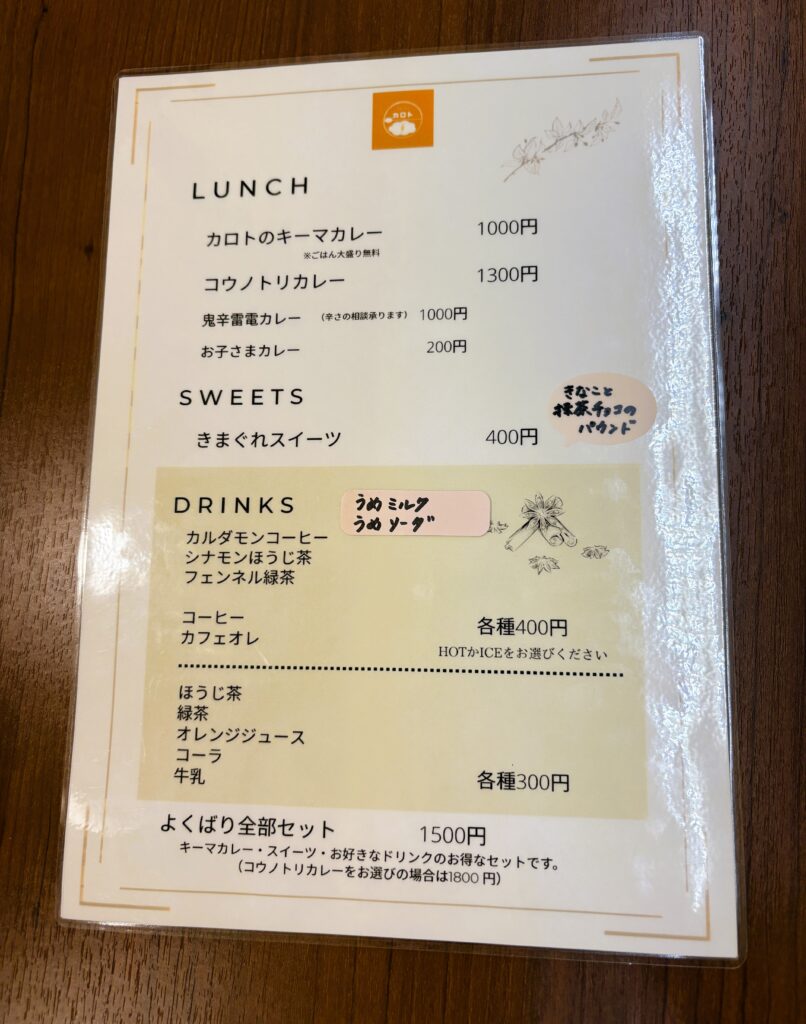 カロト
LUNCH
カロトのキーマカレー 1000円
※ごはん大盛り無料
コウノトリカレー 1300円
鬼辛雷電カレー (辛さの相談承ります) 1000円
お子さまカレー 200円
SWEETS
きまぐれスイーツ 400円
きなこと
抹茶チョコの
パウンド
DRINKS
うめミルク
うめソーダ
カルダモンコーヒー
シナモンほうじ茶
フェンネル緑茶
コーヒー
カフェオレ
各種400円
HOTかICEをお選びください
ほうじ茶
緑茶
オレンジジュース
コーラ
牛乳
各種300円
よくばり全部セット 1500円
キーマカレー・スイーツ・お好きなドリンクのお得なセットです。
(コウノトリカレーをお選びの場合は1800 円)